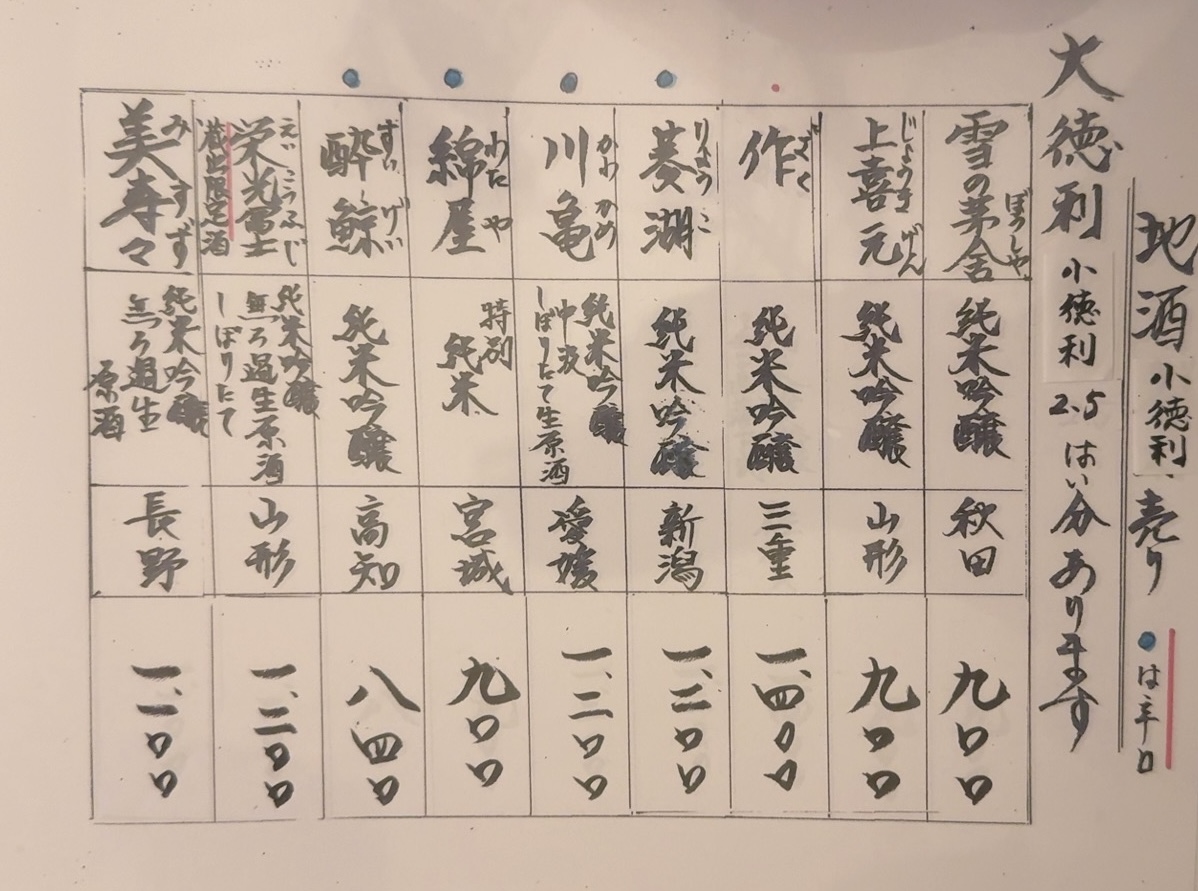 地酒 小徳利 売り ●は辛口
大徳利 小徳利 2.5 はい分あります
雪の茅舎 ぼうしゃ
純米吟醸
秋田
九〇〇
上喜元 じょうきげん
純米吟醸
山形
九〇〇
作 ざく
純米吟醸
三重
一、四〇〇
菱湖 りょうこ
純米吟醸
新潟
一、二〇〇
川亀 かわかめ
純米吟醸
中汲
しぼりたて生原酒
愛媛
一、二〇〇
綿屋 わたや
特別
純米
宮城
九〇〇
酔鯨 すいげい
純米吟醸
高知
八四〇
栄光冨士 えいこうふじ
蔵出限定酒
純米吟醸
無ろ過生原酒
しぼりたて
山形
一、二〇〇
美寿々 みすず
純米吟醸
無ろ過生
原酒
長野
一、一〇〇